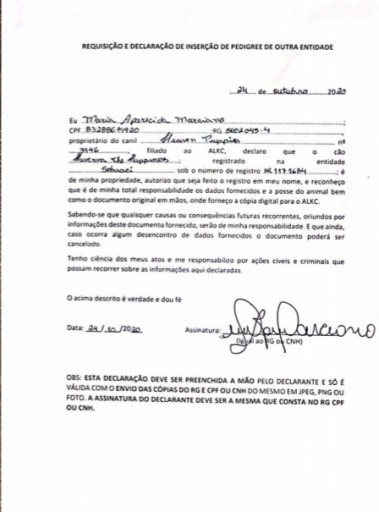 REQUISIÇÃO E DECLARAÇÃO DE INSERÇÃO DE PEDIGREE DE OUTRA ENTIDADE
24 de outubro 2020
Eu Maria Aparecida Marciano
CPF RG 5602045-4
proprietário do canil Heaven Puppies nº
, filiado ao ALKC, declaro que o cão
registrado na entidade
Sobraci sob o número de registro ; é
de minha propriedade, autorizo que seja feito o registro em meu nome, e reconheço
que é de minha total responsabilidade os dados fornecidos e a posse do animal bem
como o documento original em mãos, onde forneço a cópia digital para o ALKC.
Sabendo-se que quaisquer causas ou consequências futuras recorrentes, oriundos por
informações deste documento fornecido, serão de minha responsabilidade. E que ainda,
caso ocorra algum desencontro de dados fornecidos o documento poderá ser
cancelado.
Tenho ciência dos meus atos e me responsabilizo por ações cíveis e criminais que
possam recorrer sobre as informações aqui declaradas.
O acima descrito é verdade e dou fé
Data: 24/10/2020 Assinatura:
(Igual ao RG ou CNH)
OBS: ESTA DECLARAÇÃO DEVE SER PREENCHIDA A MÃO PELO DECLARANTE E SÓ É
VÁLIDA COM O ENVIO DAS CÓPIAS DO RG E CPF OU CNH DO MESMO EM JPEG, PNG OU
FOTO. A ASSINATURA DO DECLARANTE DEVE SER A MESMA QUE CONSTA NO RG CPF
OU CNH.